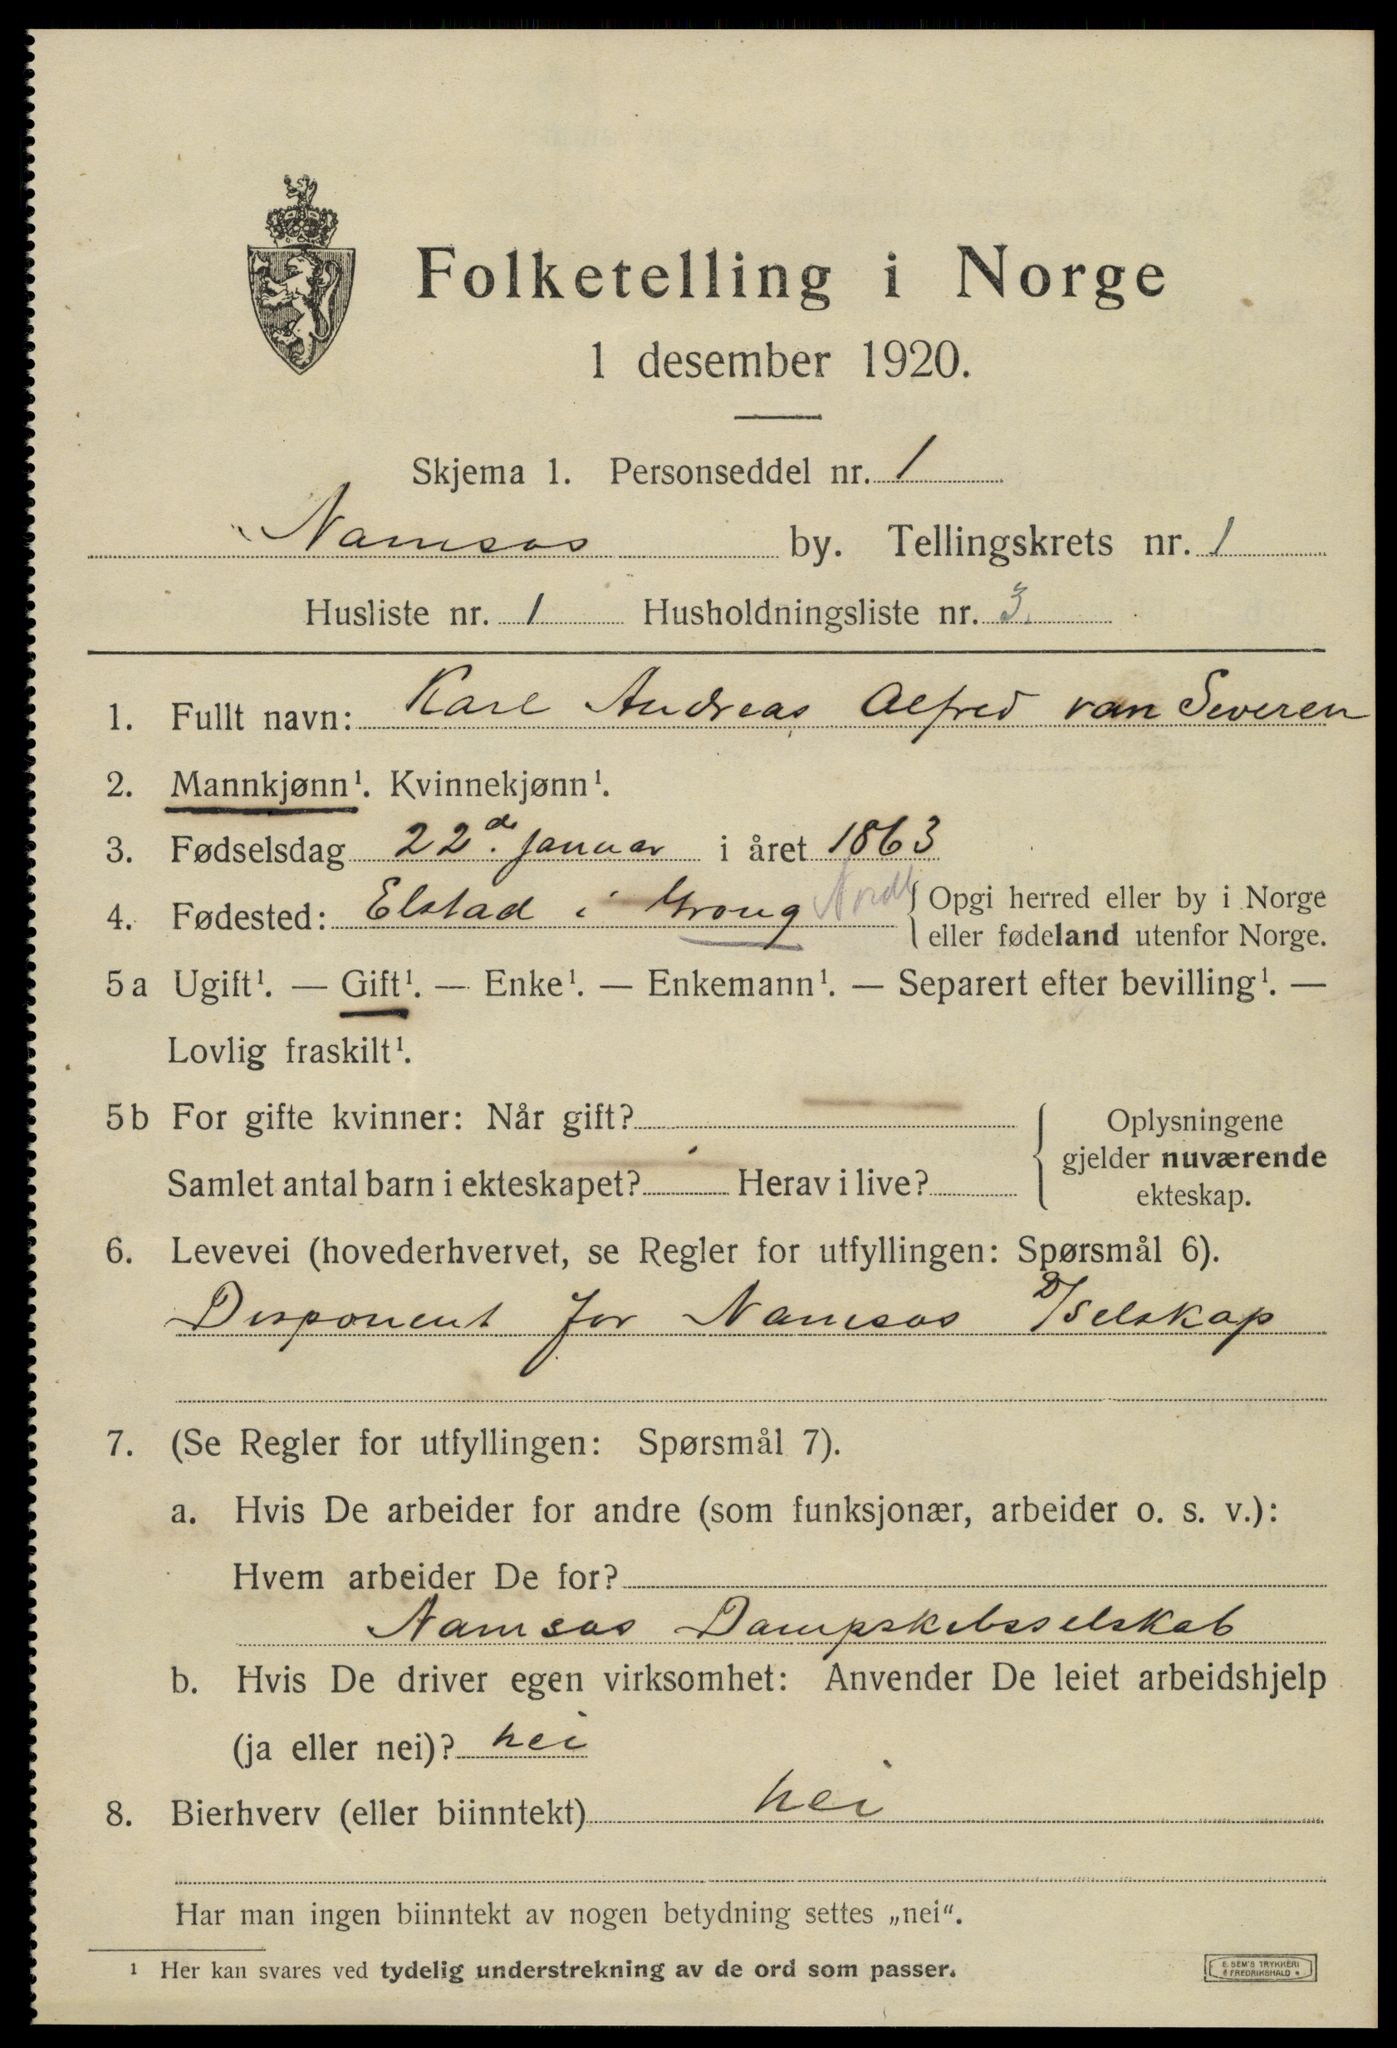 Folketelling i Norge
1 desember 1920.
Skjema 1. Personseddel nr. 1
Namsos by. Tellingskrets nr. 1
Husliste nr. 1 Husholdningsliste nr. 3.
1. Fullt navn: Karl Andreas Alfred van Severen
2. Mannkjønn¹. Kvinnekjønn¹.
3. Fødselsdag 22de. januar i året 1863
4. Fødested: Elstad i Grong Nordl { Opgi herred eller by i Norge
eller fødeland utenfor Norge.
5 a Ugift¹. — Gift¹. — Enke¹. — Enkemann¹. — Separert efter bevilling¹. —
Lovlig fraskilt¹.
5 b For gifte kvinner: Når gift? { Oplysningene
gjelder nuværende
ekteskap.
Samlet antal barn i ekteskapet? Herav i live?
6. Levevei (hovederhvervet, se Regler for utfyllingen: Spørsmål 6).
Disponent for Namsos D/Selskap
7. (Se Regler for utfyllingen: Spørsmål 7).
a. Hvis De arbeider for andre (som funksjonær, arbeider o. s. v.):
Hvem arbeider De for?
Namsos Dampskibsselskab
b. Hvis De driver egen virksomhet: Anvender De leiet arbeidshjelp
(ja eller nei)? nei
8. Bierhverv (eller biinntekt) nei
Har man ingen biinntekt av nogen betydning settes „nei“.
¹ Her kan svares ved tydelig understrekning av de ord som passer.
E. SEM'S TRYKKERI
FREDRIKSHALD